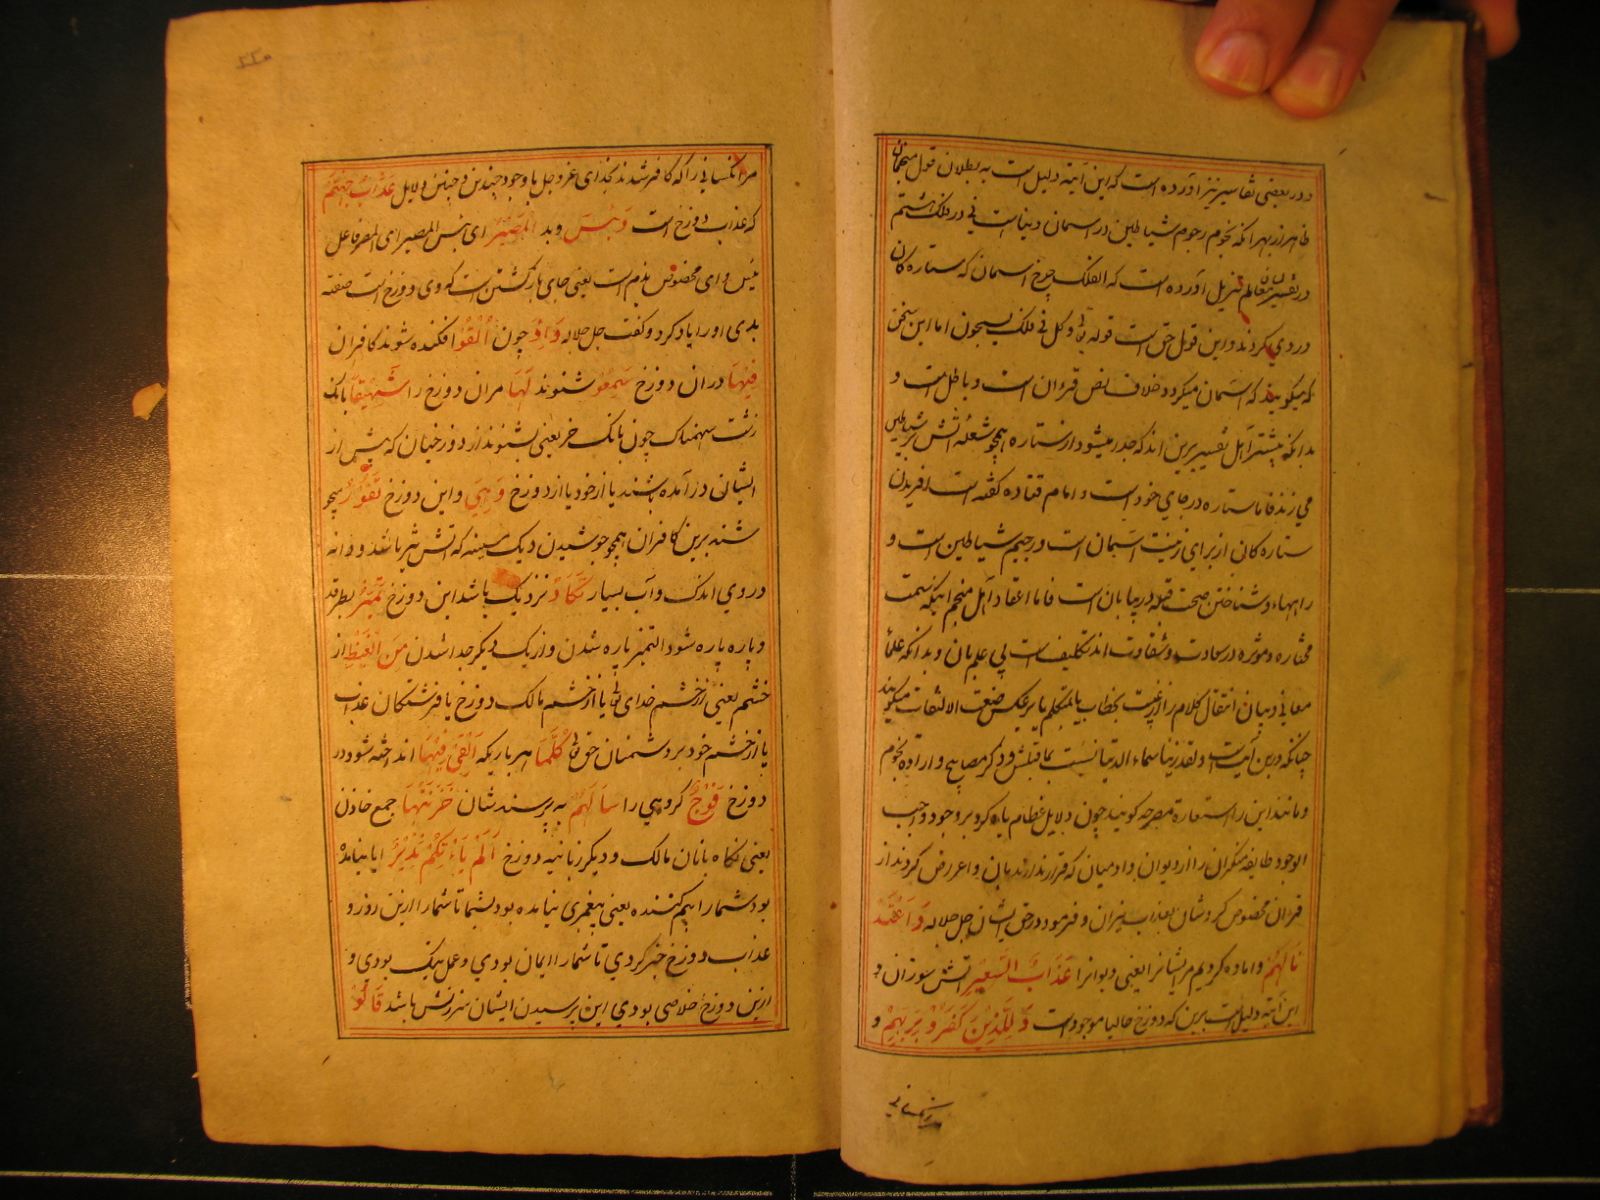 و در بعضی تفاسیر نیز آورده است که این آیته دلیل است به بطلان قول منجمان
ظاهر از بهر آنکه نجوم رجوم شیاطین در اسمان دنیاست نی در فلک هشتم
در تفسیر معالم تنزیل آورده است که الفلک چرخ اسمان که ستاره کان
در وی کردند و این قول حق است قوله تع و کل فی فلک یسبحون اما این سخن
که میکویند که اسمان میکردد خلاف نص قران است و باطل است و
بدانکه بیشتر اهل تفسیر برین اند که جدا میشود از ستاره همچو شعله آتش بر شیاطین
می زند فاما ستاره در جای خود است و امام قتاده کفته است آفریدن
ستاره کان از برای زینت اسمان است و رجیم شیاطین است و
راهها و شناختن صحت قبله در بیابان است فاما اعقاد اهل منجم اینکه نسمت
مختاره و موثره در سعادت و شقاوت اند تکلیف است بی علم بان و بدانکه علمآ
معانی و بیان انتقال کلام را از غیبت بخطاب یا بمتکلم یا بر عکس صنعت الالتفات میکویند
چنانکه درین آیت است و لقد زینا سماء الدنیا نسبت بما قبلش و ذکر مصابیح و اراده نجوم
و مانند این را استعارة مصرحه کویند چون دلایل عظام یاد کرد بر وجود واجب
الوجود طایفه منکران را از دیوان و ادمیان که قرار ندارند بان و اعرض کردند از
قران مخصوص کردشان بعذاب نیران و فرمود در حق ایشان جل جلاله وَاَعْتَدْ
نَا لَهُمْ و اماده کردیم مر ایشانرا یعنی دیوانرا عَذَابَ السَّعِیر آتش سوزان و
این آیته دلیل است برین که دوزخ حالیا موجود است وَ لِلَّذِیْنَ کَفَرُوْ بِرَبِّهِمْ و
مر انکسانی را که کافر شدند بخدای عز و جل با وجود چندین و چنین دلایل عَذَابُ جَهَنَّمَ
که عذاب دوزخ است وَبِئْسَ و بد الْمَصِیْرُ ای بئس المصیر ای المصر فاعل
بئس و ای مخصوص بذم است یعنی جای باز کشتن است که وی دوزخ است صفته
بدی او را یاد کرد و کفت جل جلاله وَاِذَ چون اُلْقُوْا افکنده شوند کافران
فِیْهَا دران دوزخ سَمِعُوْ شنوند لَهَا مر ان دوزخ را شَهِیْقًا بانک
زشت سهمناک چون بانک خر یعنی بشنوند از دوزخیان که پیش از
ایشان درآمده باشند یا از خود یا از دوزخ وَهِیَ و این دوزخ تَفُوْرُ میجو
شند برین کافران همچو جوشیدن دیک مسینه که آتش تیز باشد و دانه
در وی اندک و آب بسیار تَکَادُ نزدیک باشد این دوزخ تَمَیَّزُ بطرقد
و پاره پاره شود التمیز پاره شدن و از یک دیکر جدا شدن مِنَ الْغَیْظِ از
خشم یعنی از خشم خدای تع یا از خشم مالک دوزخ یا فرشتکان عذاب
یا از خشم خود بر دشمنان حق تع کُلَّمَا هر باریکه اُلْقِیَ فِیْهَا انداخته شود در
دوزخ فَوْجٌ کروهی را سَاَلَهُمْ به پرسند شان خَزَنَتُهَا جمع خازن
یعنی نکاه بانان مالک و دیکر زبانیه دوزخ اَلَمْ یَاْتِکُمْ نَذِیْرٌ ایا نیامده
بود شمار ابیم کننده یعنی پیغمبری نیامده بود بشما تا شمارا ازین روز و
عذاب دوزخ خبر کردی تا شمارا ایمان بودی و عمل نیک بودی و
ازین دوزخ خلاصی بودی این پرسیدن ایشان سرزنش باشد قَالُوْ
مر انکسانی